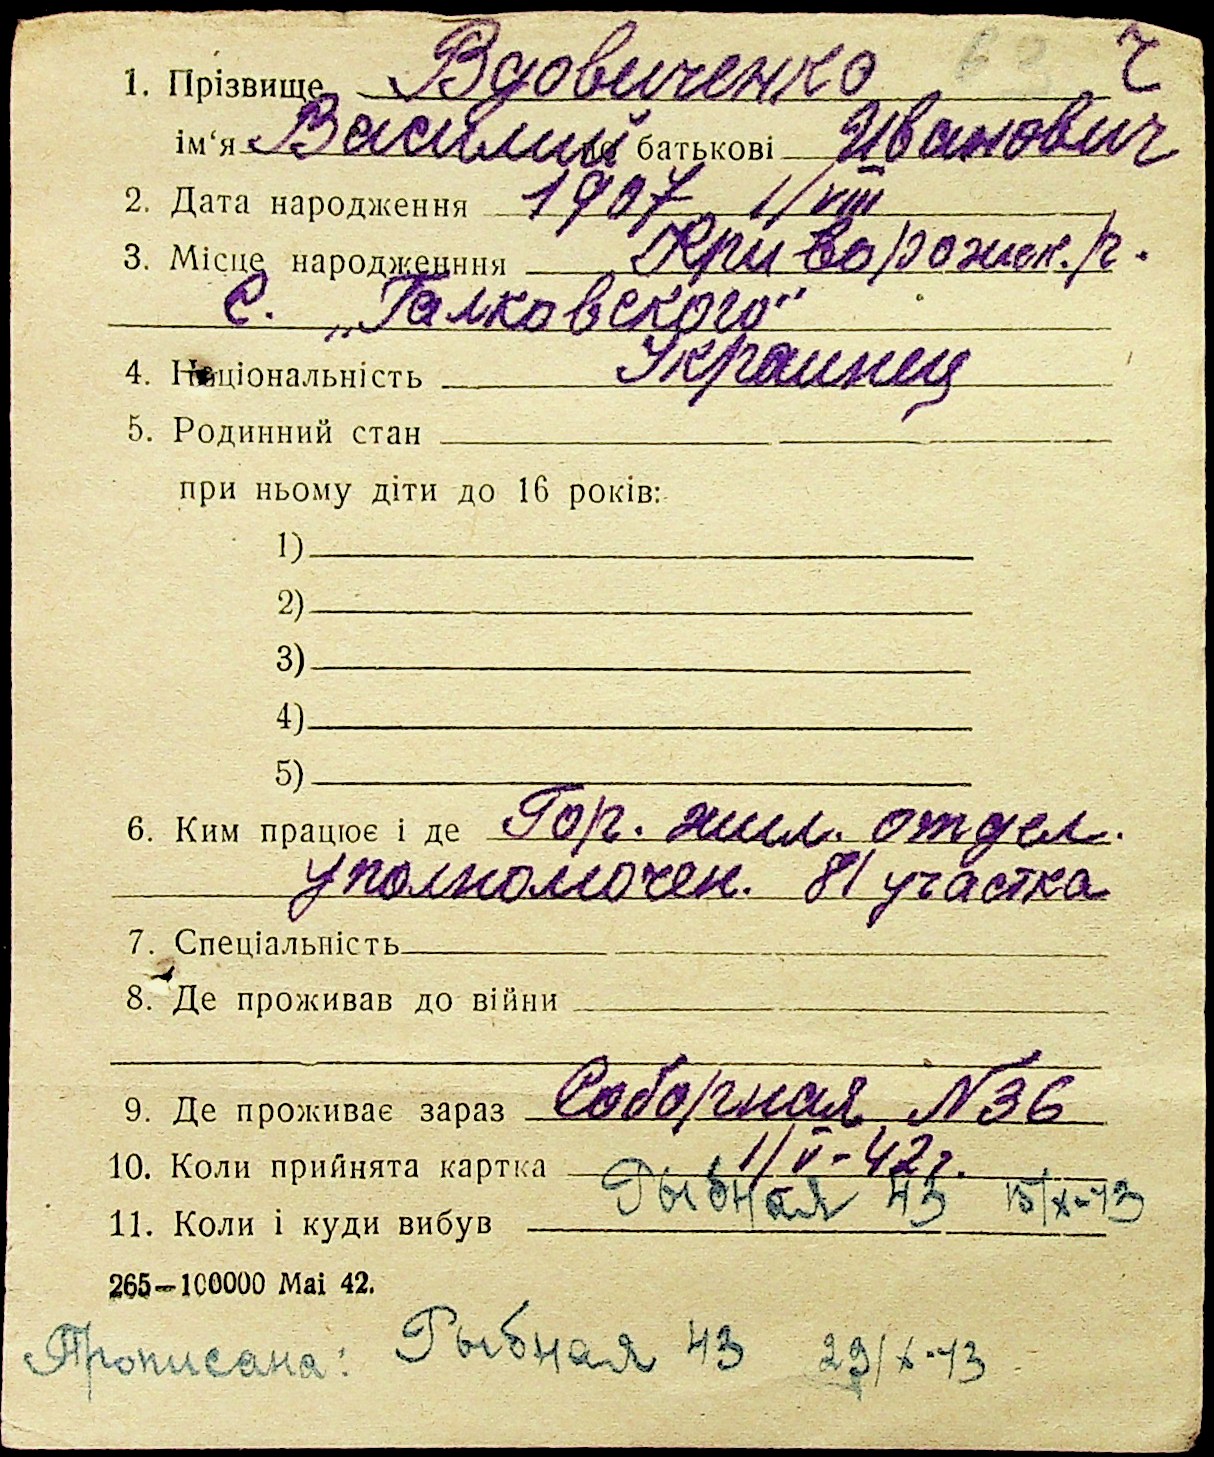 Ч
1. Прізвище Вдовиченко
ім‘я Василий по батькові Иванович
2. Дата народження 1907 1/VIII
3. Місце народженння Криворожск. р.
с. „Галковского"
4. Національність Украинец
5. Родинний стан
при ньому діти до 16 років:
1)
2)
3)
4)
5)
6. Ким працює і де Гор. жил. отдел.
уполномочен. 81 участка
7. Спеціальність
8. Де проживав до війни
9. Де проживає зараз Соборная №36
10. Коли прийнята картка 1/V-42г.
11. Коли і куди вибув Рыбная 43 15/X-43
265—100000 Mai 42.
Прописана: Рыбная 43 29/X-43